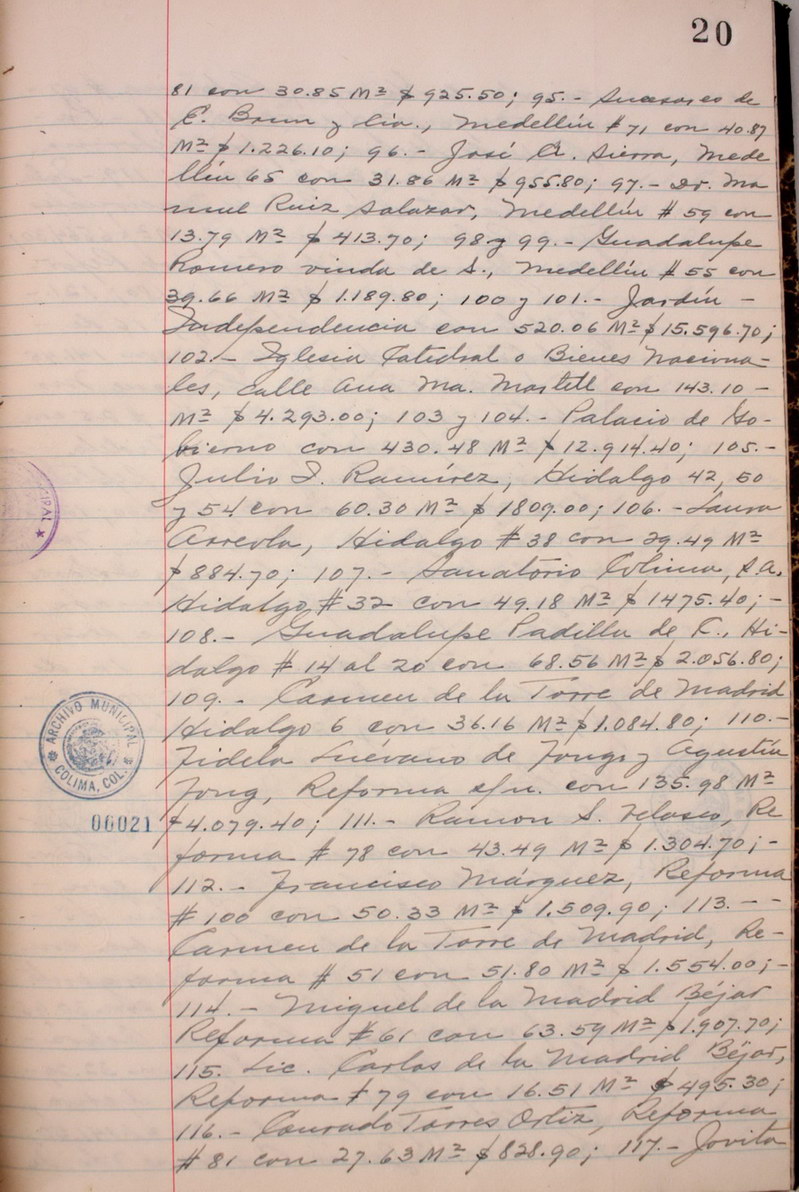 20
81 con 30.85 M² $925.50; 95.- Sucesores de
E. Brun y Cía., Medellín #71 con 40.87
M² $1.226.10; 96.- José A. Sierra, Mede
llín 65 con 31.86 M² $955.80; 97.- Dr. Ma
nuel Ruiz Salazar, Medellín #59 con
13.79 M² $413.70; 98 y 99.- Guadalupe
Romero viuda de S., Medellín #55 con
39.66 M² $1.189.80; 100 y 101.- Jardín -
Independencia con 520.06 M² $15,596.70;
102.- Iglesia Catedral o Bienes Naciona-
les, calle Ana Ma. Martell con 143.10 -
M² $4.293.00; 103 y 104.- Palacio de Go-
bierno con 430.48 M² $12.914.40; 105.-
Julio I. Ramírez, Hidalgo 42, 50
y 54 con 60.30 M² $1809.00; 106.- Laura
Arreola, Hidalgo #38 con 29.49 M²
$884.70; 107.- Sanatorio Colima, S.A.
Hidalgo #32 con 49.18 M² $1475.40; -
108.- Guadalupe Padilla de F., Hi-
dalgo #14 al 20 con 68.56 M² $2.056.80;
109.- Carmen de la Torre de Madrid
Hidalgo 6 con 36.16 M² $1.084.80; 110.-
Fidela Luévano de Fong y Agustín
Fong, Reforma s/n. con 135.98 M²
$4.079.40; 111.- Ramon S. Velasco, Re
forma #78 con 43.49 M² $1.304.70; -
112.- Francisco Márquez, Reforma
#100 con 50.33 M² $1.509.90; 113.- -
Carmen de la Torre de Madrid, Re-
forma #51 con 51.80 M² $1.554.00; -
114.- Miguel de la Madrid Béjar
Reforma #61 con 63.59 M² $1.907.70;
115. Lic. Carlos de la Madrid Béjar,
Reforma #79 con 16.51 M² $495.30;
116.- Conrado Torres Ortiz, Reforma
#81 con 27.63 M² $828.90; 117.- Jovita
CIPAL ★
ARCHIVO MUNICIPAL
COLIMA, COL.
00021